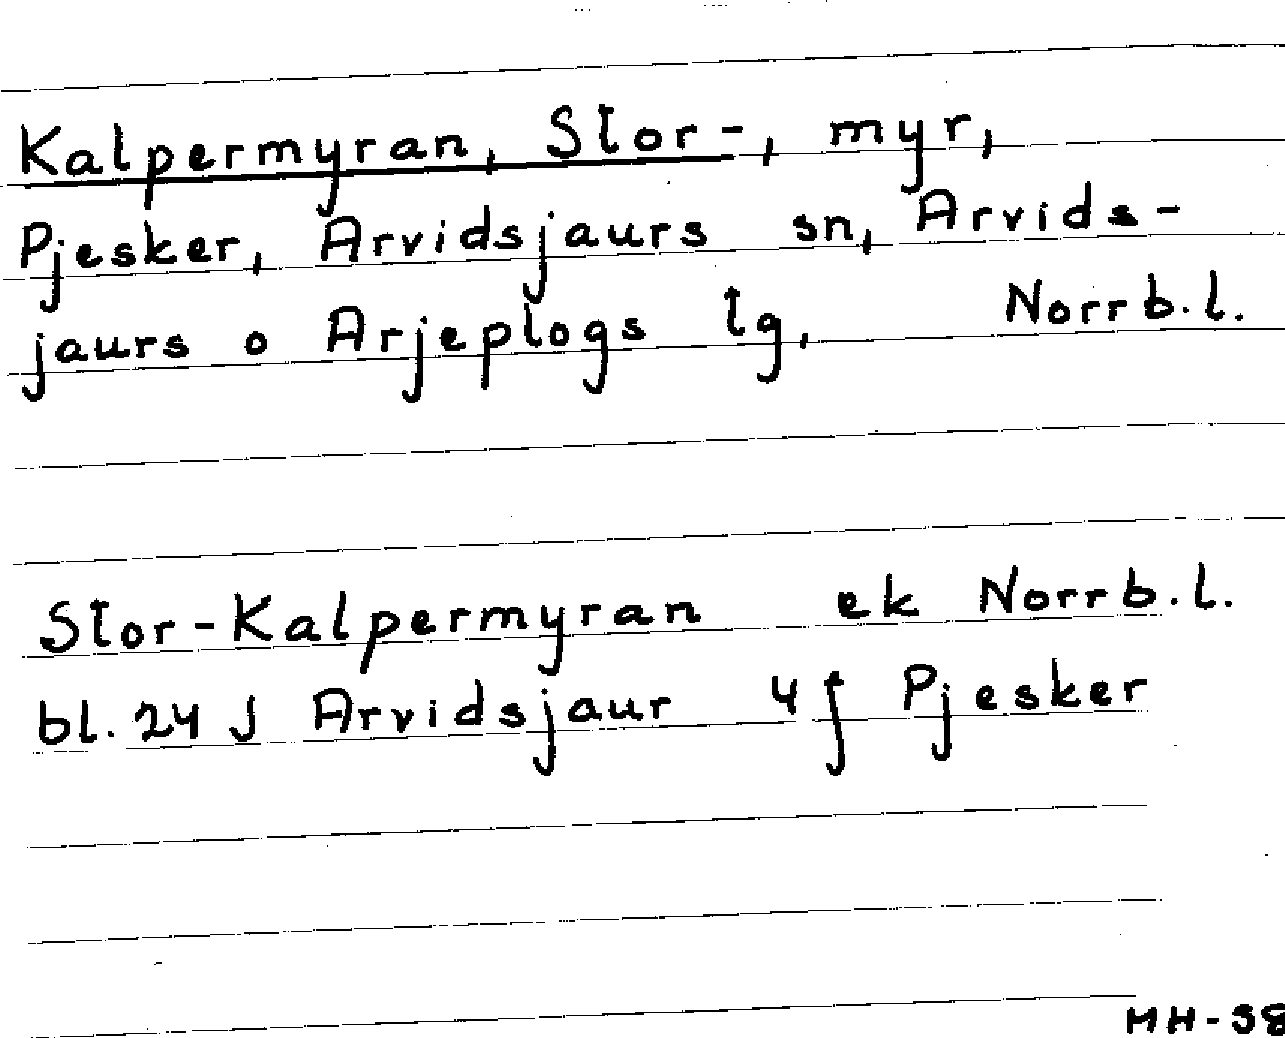 Kalpermyran, Stor-, myr,
Pjesker, Arvidsjaurs sn, Arvids-
jaurs o Arjeplogs tg, Norrb.l.
Stor-Kalpermyran ek Norrb.l.
bl. 24 J Arvidsjaur 4 f Pjesker
MH-38